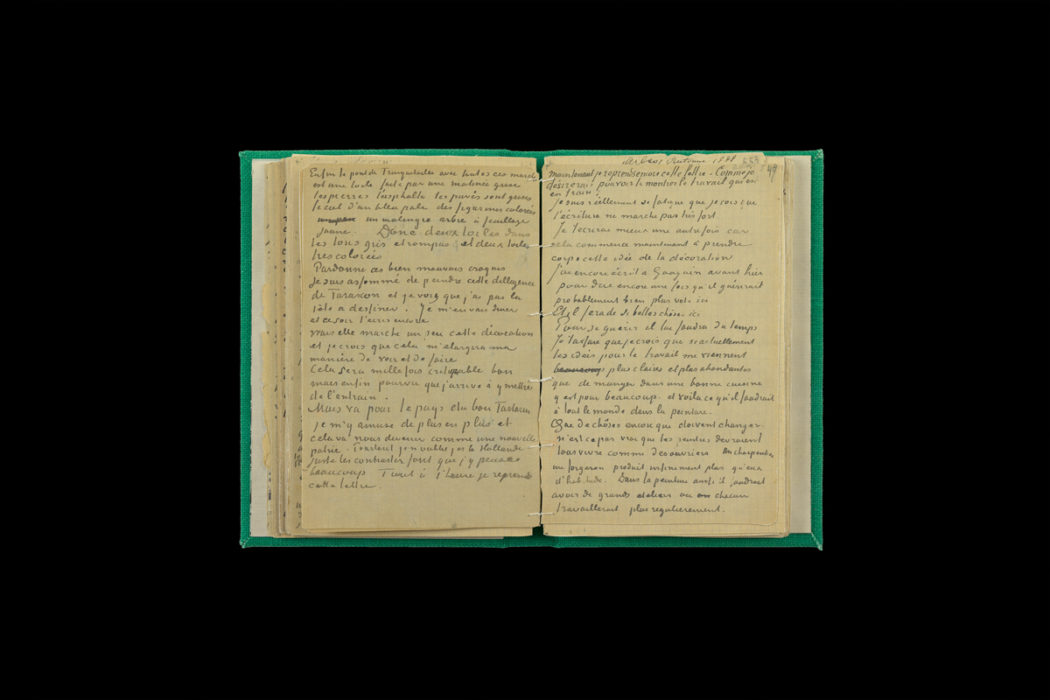 Enfin le pont de Trinquetaille avec toutes ces marches
est une toile faite par une matinée grise
les pierres l'asphalte les pavés sont gris
le ciel d'un bleu pale des figurines colorées
un malingre arbre à feuillage
jaune. Donc deux toiles dans
les tons gris et rompus et deux toiles
tres colorées
Pardonne ces bien mauvais croquis
Je suis assommé de peindre cette diligence
de Tarascon et je vois que j'ai pas la
tête à dessiner. Je m'en vais diner
et ce soir t'écris encore
mais elle marche un peu cette décoration
et je crois que cela m'elargera ma
manière de voir et de faire
Cela sera mille fois critiquable bon
mais enfin pourvu que j'arrive à y mettre
de l'entrain.
Mais va pour le pays du bon Tartarin
je m'y amuse de plus en plus et
cela va nous devenir comme une nouvelle
patrie. Pourtant je n'oublie pas la Hollande
juste les contrastes font que j'y pense
beaucoup Tout à l'heure je reprends
cette lettre.
Arles Automne 1888 553
49
maintenant je reprends encore cette lettre. Comme je
désirerais pouvoir te montrer le travail qui est
en train
Je suis réellement si fatigué que je vois que
l'écriture ne marche pas très fort
Je t'ecrirai mieux une autre fois car
cela commence maintenant à prendre
corps cette idée de la décoration
J'ai encore écrit à Gauguin avant hier
pour dire encore une fois qu'il guérirait
probablement bien plus vite ici
Et il fera de si belles chôses ici
Pour se guérir il lui faudra du temps
Je t'assure que je crois que si actuellement
les idées pour le travail me viennent
beaucoup plus claires et plus abondantes
que de manger dans une bonne cuisine
y est pour beaucoup. et voila ce qu'il faudrait
à tout le monde dans la peinture.
Que de chôses encore qui doivent changer
n'est ce pas vrai que les peintres devraient
tous vivre comme des ouvriers Un charpentier
un forgeron produit infiniment plus qu'eux
d'habitude. Dans la peinture aussi il faudrait
avoir de grands ateliers où on chacun
travaillerait plus regulierement.